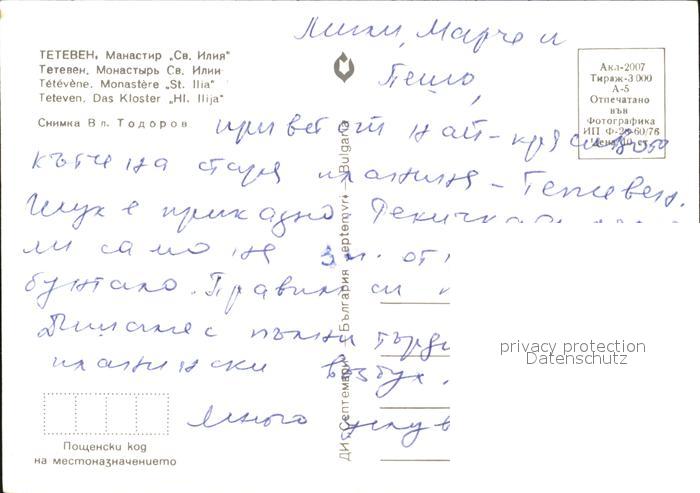 ТЕТЕВЕН. Манастир „Св. Илия"
Тетевен. Монастырь Св. Илии
Tétévène. Monastère "St. Ilia"
Teteven. Das Kloster „Hl. Ilija"
Снимка Вл. Тодоров
Акл-2007
Тираж-3 000
А-5
Отпечатано
във
Фотографика
ИП Ф-26-60/76
Цена 10 ст.
Лили, Марче и
Пешо,
привет от най-красивото
кътче на стара планина – Тетевен.
Тук е приказно. Рекичка
ли само на 3 м. от
бунгало. Правим си
Дишаме с пълни гърди
планински въздух.
Много целув
ДИ „Септември" България Septemvri – Bulgaria
Пощенски код
на местоназначението
privacy protection
Datenschutz